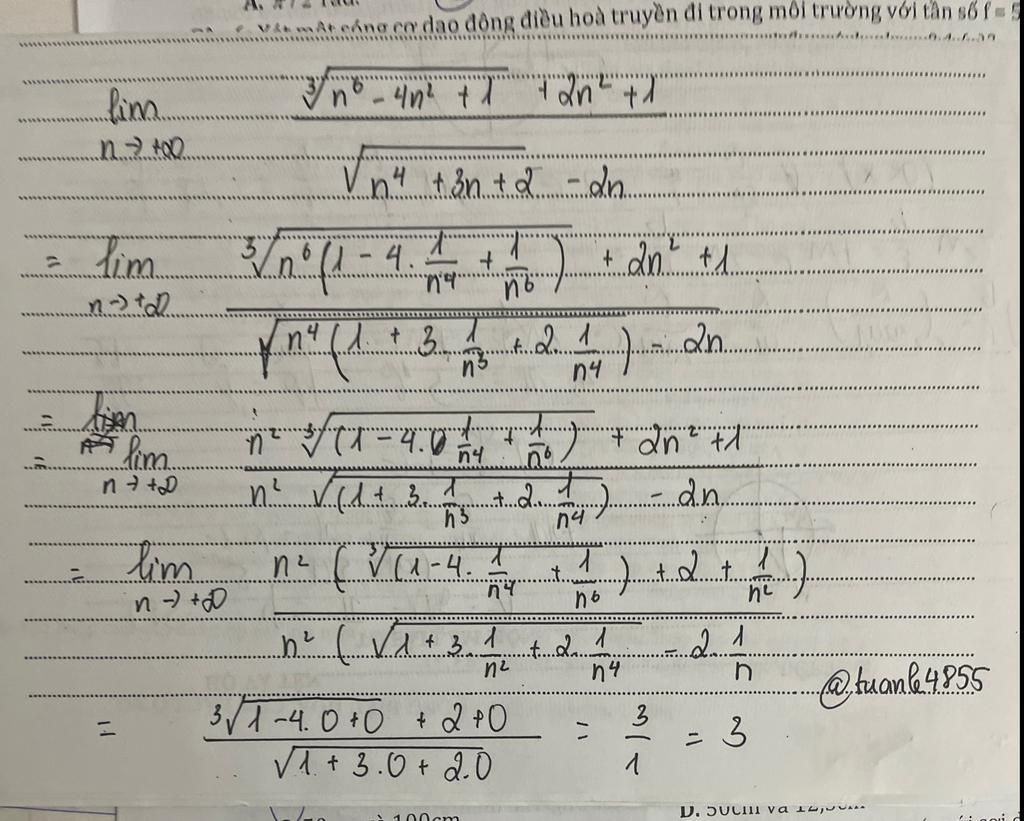 A. π/2 rad.
Vật một sóng cơ dao động điều hoà truyền đi trong môi trường với tần số f = 5
lim n→+∞ (∛(n⁶ - 4n² + 1) + 2n² + 1) / (√(n⁴ + 3n + 2) - 2n)
= lim n→+∞ (∛(n⁶(1 - 4.1/n⁴ + 1/n⁶)) + 2n² + 1) / (√(n⁴(1 + 3.1/n³ + 2.1/n⁴)) - 2n)
=
= lim n→+∞ (n² ∛((1 - 4.1/n⁴ + 1/n⁶)) + 2n² + 1) / (n² √((1 + 3.1/n³ + 2.1/n⁴)) - 2n)
= lim n→+∞ n² (∛((1 - 4.1/n⁴ + 1/n⁶)) + 2 + 1/n²) / n² (√(1 + 3.1/n² + 2.1/n⁴) - 2.1/n
@tuanle4855
= (∛(1 - 4.0 + 0) + 2 + 0) / √(1 + 3.0 + 2.0) = 3/1 = 3
100cm
D. 50cm và 12,5cm